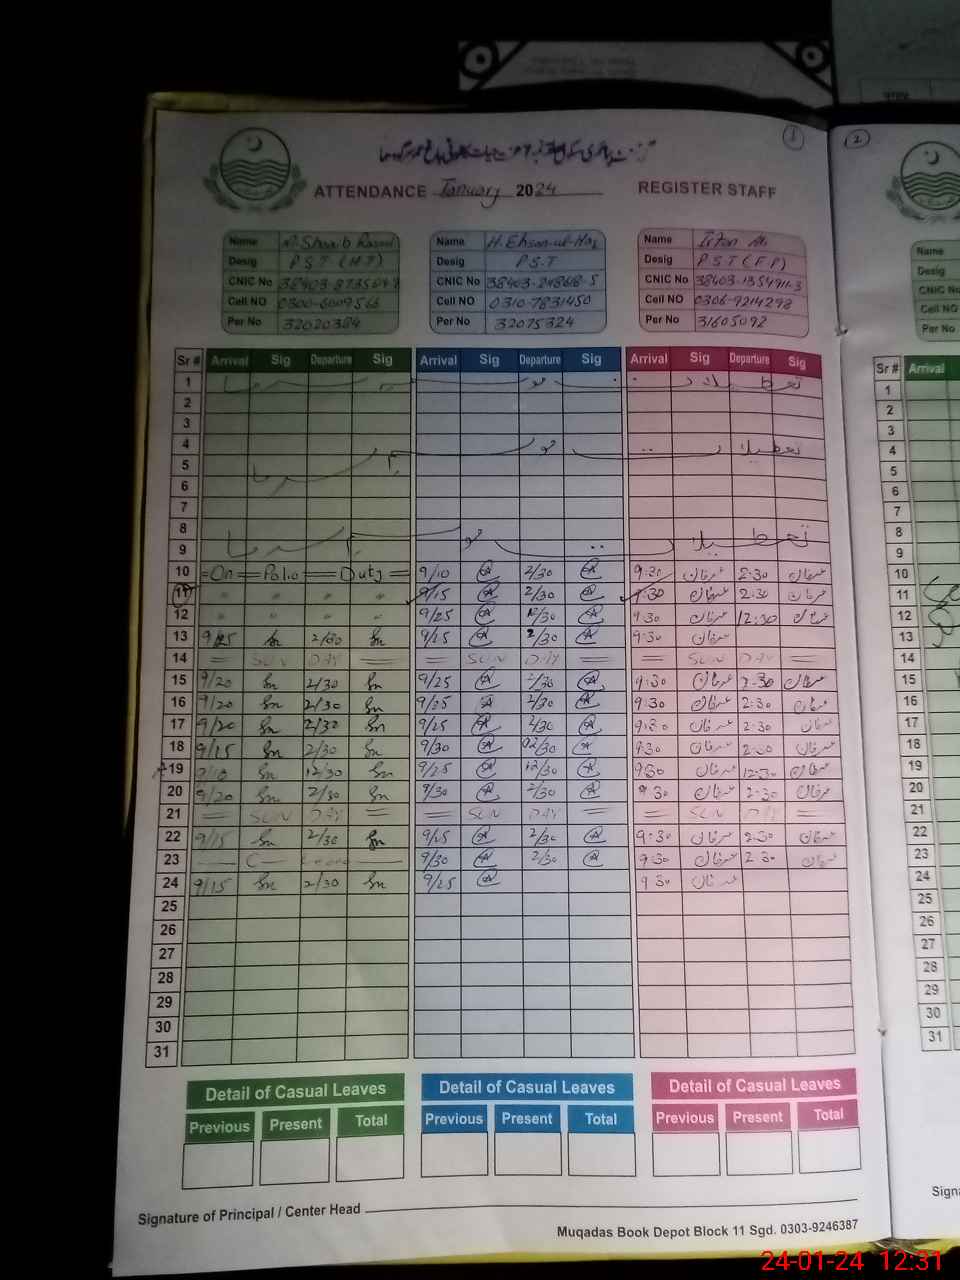 1
2
ATTENDANCE January 2024 REGISTER STAFF
Name Name H. Ehsan-ul-Haq Name Irfan Ali
Desig P.S.T (H.T) Desig P.S.T Desig P.S.T (F.P)
CNIC No CNIC No 38403-24868-5 CNIC No 38403-1354911-3
Cell NO 0300-6009566 Cell NO 0310-7831450 Cell NO 0306-9214298
Per No 32020384 Per No 32075324 Per No 31605092
Name
Desig
CNIC No
Cell NO
Per No
Sr # Arrival Sig Departure Sig Arrival Sig Departure Sig Arrival Sig Departure Sig
Sr # Arrival
1 تعطیلات موسم سرما
2
3
4 تعطیلات موسم
5 سرما
6
7
8
9 تعطیلات موسم سرما
10 = On = Polio = Duty = 9/10 2/30 9:30 عرفان 2:30 عرفان
11 " " " " 9/15 2/30 9:30 عرفان 2:30 عرفان
12 " " " " 9/25 12/30 9:30 عرفان 12:30 عرفان
13 9/25 2/30 9/15 2/30 9:30 عرفان
14 = SUN DAY = = SUN DAY = = SUN DAY =
15 9/20 2/30 9/25 2/30 9:30 عرفان 2:30 عرفان
16 9/20 2/30 9/25 2/30 9:30 عرفان 2:30 عرفان
17 9/20 2/30 9/25 2/30 9:30 عرفان 2:30 عرفان
18 9/15 2/30 9/30 02/30 9:30 عرفان عرفان
19 9/10 12/30 9/25 12/30 9:30 عرفان 12:30 عرفان
20 9/20 2/30 9/30 2/30 9:30 عرفان 2:30 عرفان
21 = SUN DAY = = SUN DAY = = SUN DAY =
22 9/15 2/30 9/25 2/30 9:30 عرفان 2:30 عرفان
23 C Leave 9/30 2/30 9:30 عرفان 2:30 عرفان
24 9/15 2/30 9/25 9:30 عرفان
25
26
27
28
29
30
31
1
2
3
4
5
6
7
8
9
10
11
12
13
14
15
16
17
18
19
20
21
22
23
24
25
26
27
28
29
30
31
Detail of Casual Leaves Detail of Casual Leaves Detail of Casual Leaves
Previous Present Total Previous Present Total Previous Present Total
Signature of Principal / Center Head
Muqadas Book Depot Block 11 Sgd. 0303-9246387
24-01-24 12:31